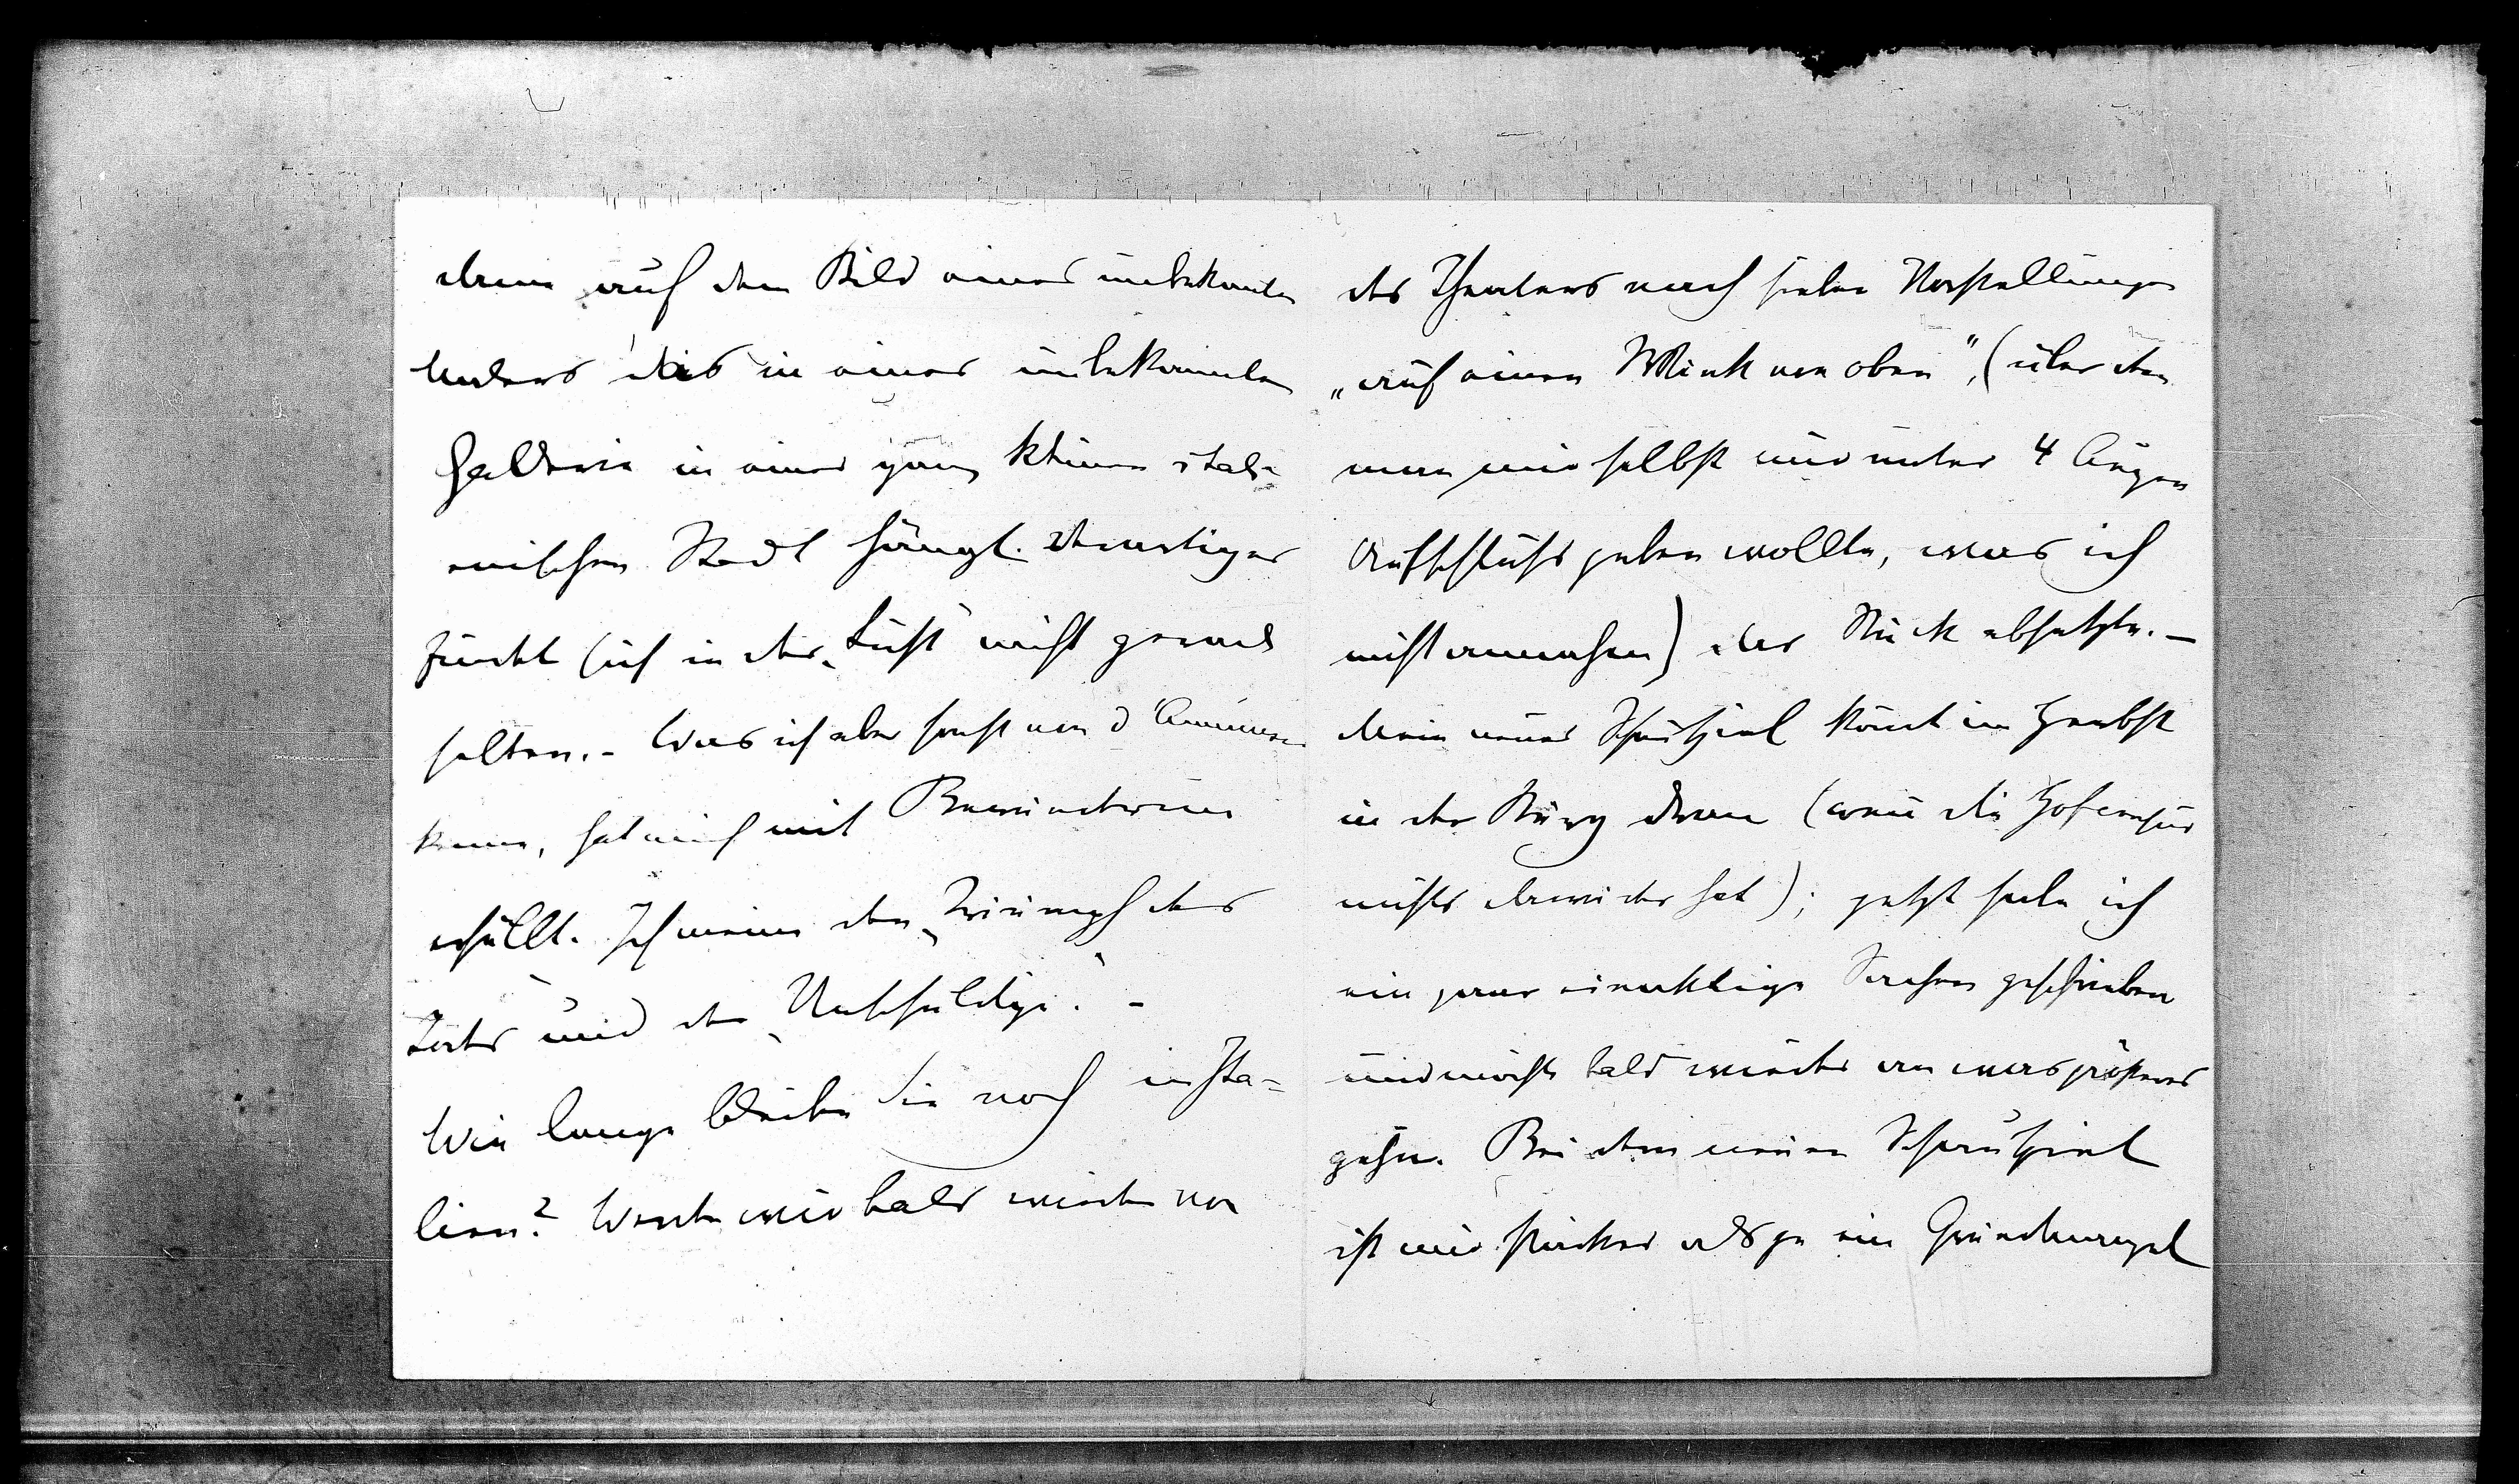 dem auf dem Bild eines unbekannten
Meisters das in einer unbekannten
Gallerie in einer ganz kleinen itali-
enischen Stadt hängt. Derartiges
findet sich in der „Lust“ nicht gerade
selten. – Was ich aber sonst von d'Annunzio
kenne, hat mich mit Bewunderung
erfüllt. Ich meine den „Triumph des
Todes“ und den „Unschuldigen“. –
Wie lange bleiben Sie noch in Ita-
lien? Werden wir bald wieder von
des Theaters nach sieben Vorstellungen
„auf einen Wink von oben“, (über den
man mir selbst nur unter 4 Augen
Aufschluss geben wollte, was ich
nicht annahm) das Stück absetzte. –
Mein neues Schauspiel kommt im Herbst
in der Burg dran (wenn die Hofcensur
nichts dawider hat); jetzt habe ich
ein paar einaktige Sachen geschrieben
und möchte bald wieder an was größeres
gehen. Bei dem neuen Schauspiel
ist mir stärker als je ein Grundmangel